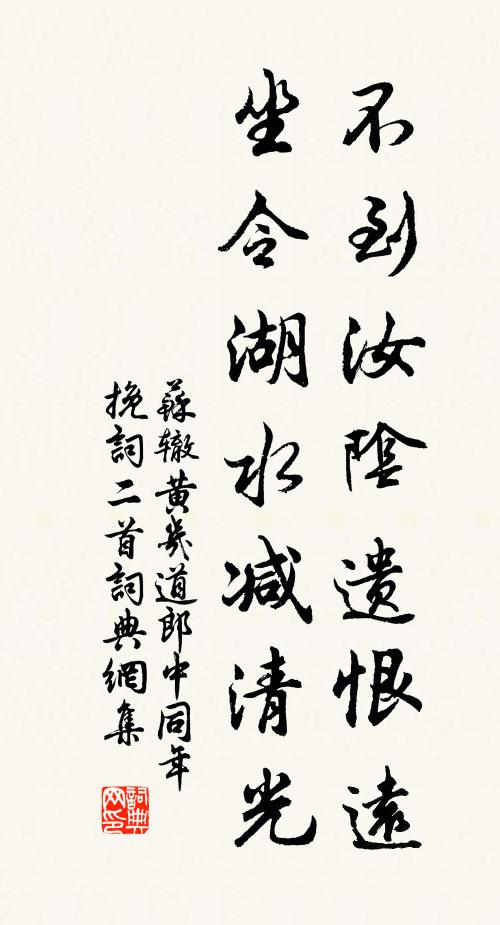 不到汝陰遺恨遠
坐令湖水减清光
蘇辙黄幾道郎中同年
挽詞二首詞典網集
詞典网印